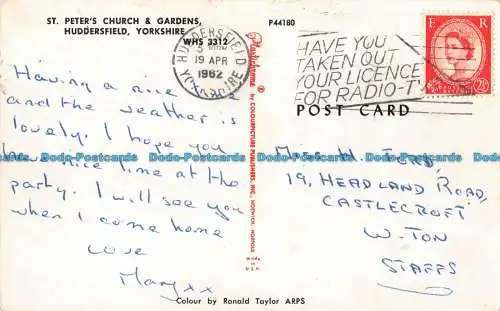 ST. PETER'S CHURCH & GARDENS,
HUDDERSFIELD, YORKSHIRE
WHS 3312
P44180
HUDDERSFIELD
19 APR
1962
YORKSHIRE
HAVE YOU
TAKEN OUT
YOUR LICENCE
FOR RADIO-TV
E R
2½D
POST CARD
Having a nice
and the weather is
lovely. I hope you
have nice time at the
party. I will see you
when I come home
love
Mary xx
Miss W. FORD
19, HEADLAND ROAD,
CASTLECROFT
W-TON
STAFFS
Mastochrome
BY COLOURPICTURE PUBLISHERS, INC., BOSTON, MASS.
Colour by Ronald Taylor ARPS
Dodo-Postcards Dodo-Postcards Dodo-Postcards Dodo-Postcards Dodo-Postcards